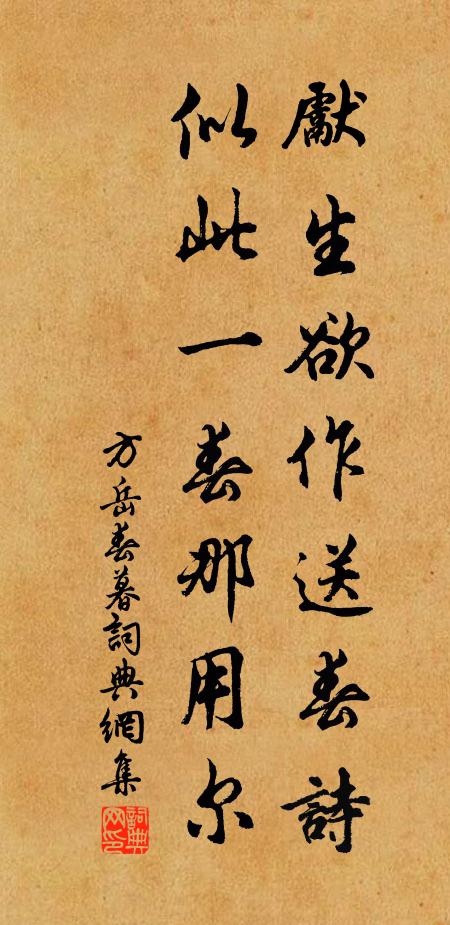 獻生欲作送春詩
似此一春那用尔
方岳春暮詞典網集
詞典網印